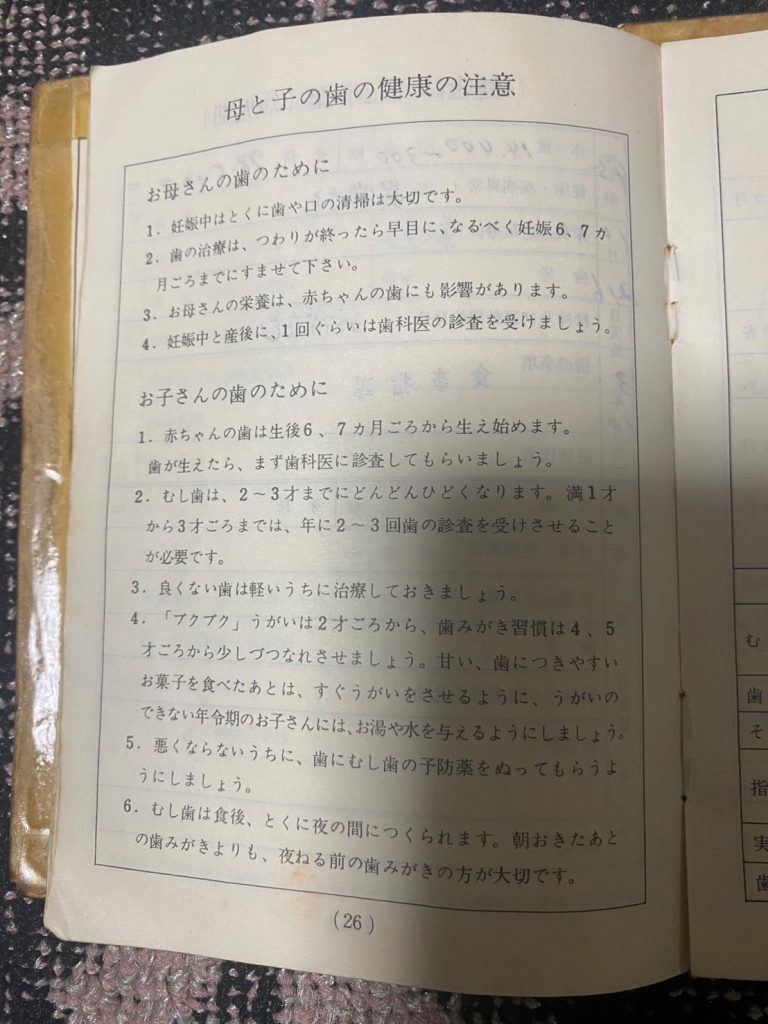 母と子の歯の健康の注意
お母さんの歯のために
1. 妊娠中はとくに歯や口の清掃は大切です。
2. 歯の治療は、つわりが終ったら早目に、なるべく妊娠6、7カ
月ごろまでにすませて下さい。
3. お母さんの栄養は、赤ちゃんの歯にも影響があります。
4. 妊娠中と産後に、1回ぐらいは歯科医の診査を受けましょう。
お子さんの歯のために
1. 赤ちゃんの歯は生後6、7カ月ごろから生え始めます。
歯が生えたら、まず歯科医に診査してもらいましょう。
2. むし歯は、2～3才までにどんどんひどくなります。満1才
から3才ごろまでは、年に2～3回歯の診査を受けさせること
が必要です。
3. 良くない歯は軽いうちに治療しておきましょう。
4. 「ブクブク」うがいは2才ごろから、歯みがき習慣は4、5
才ごろから少しづつなれさせましょう。甘い、歯につきやすい
お菓子を食べたあとは、すぐうがいをさせるように、うがいの
できない年令期のお子さんには、お湯や水を与えるようにしましょう。
5. 悪くならないうちに、歯にむし歯の予防薬をぬってもらうよ
うにしましょう。
6. むし歯は食後、とくに夜の間につくられます。朝おきたあと
の歯みがきよりも、夜ねる前の歯みがきの方が大切です。
(26)
む
歯
そ
指
実
歯